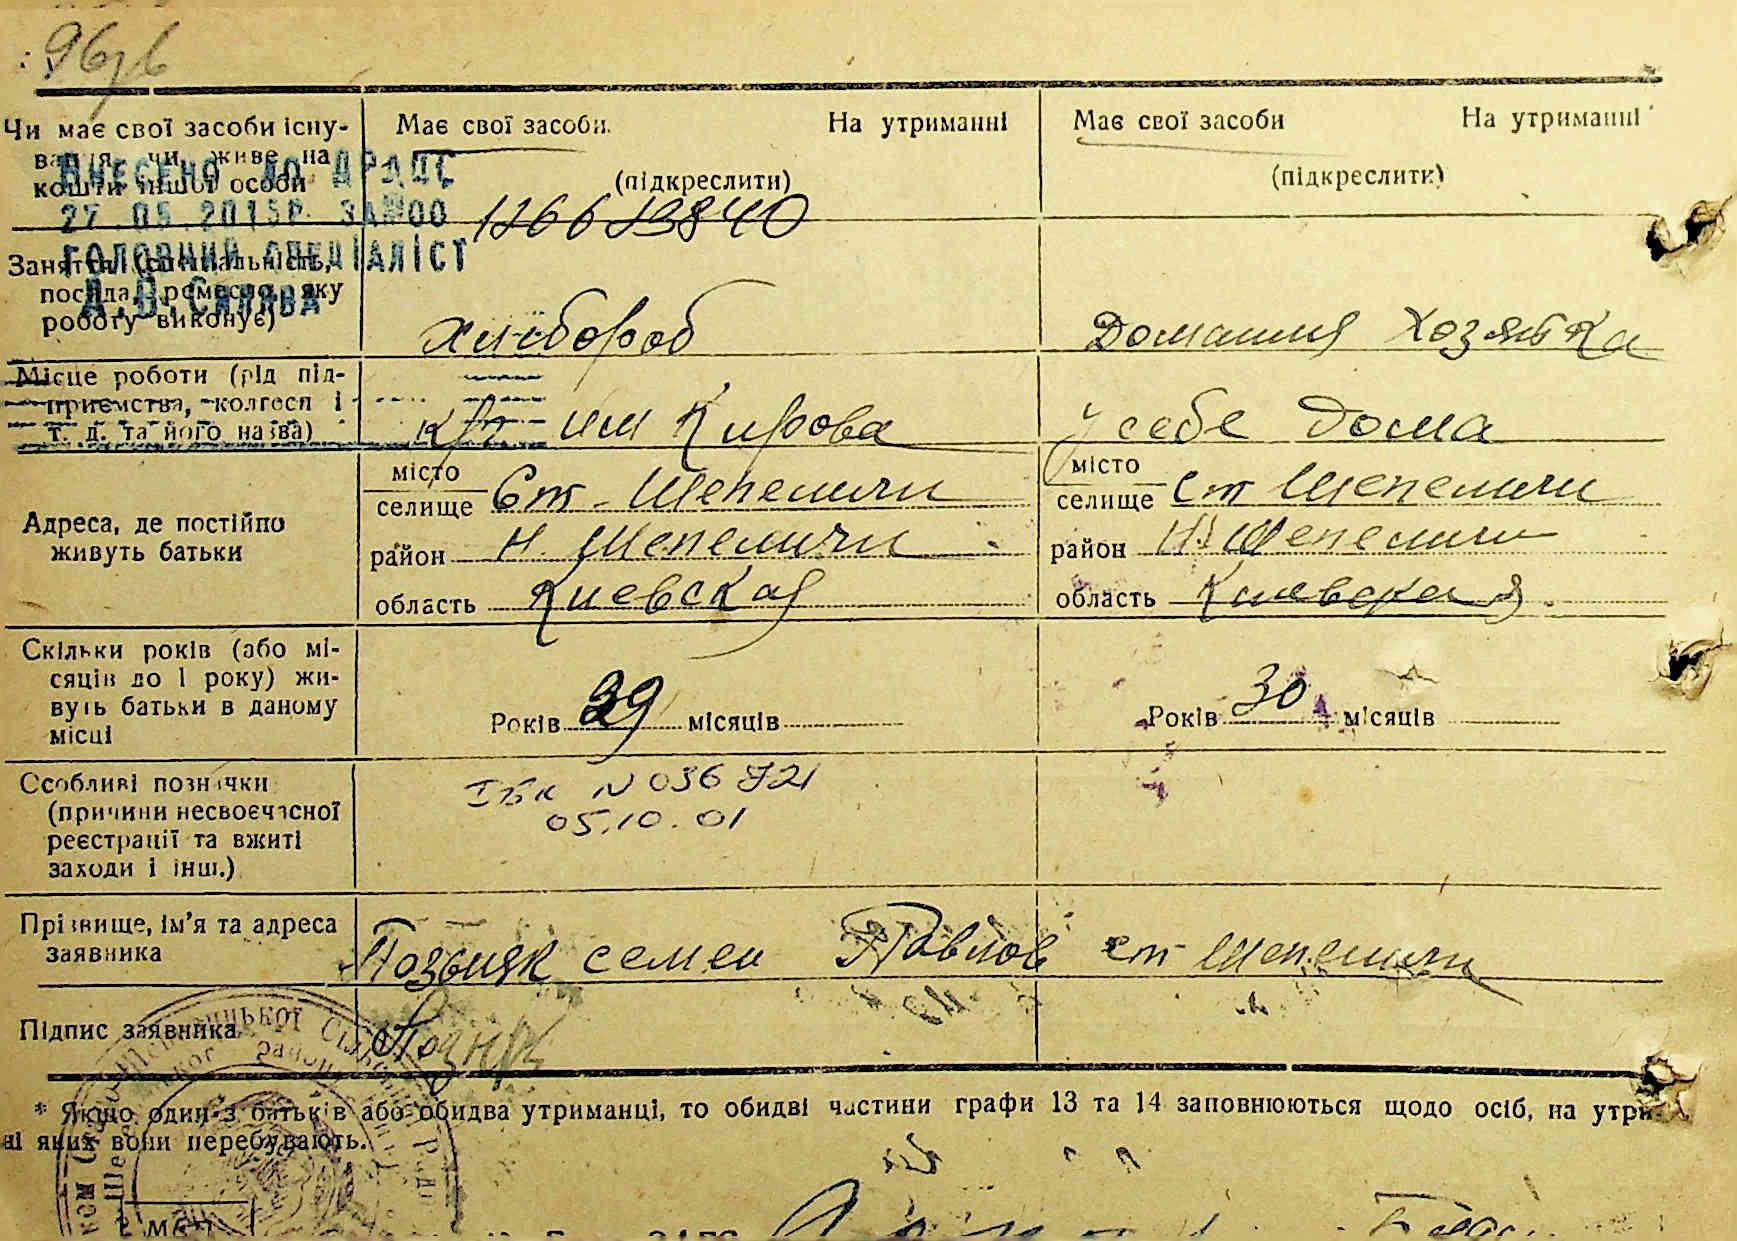 Чи має свої засоби існу-
вання чи живе на
кошти іншої особи
Має свої засоби На утриманні
(підкреслити)
Має свої засоби На утриманні
(підкреслити)
ВНЕСЕНО ДО ДРАЦС
27.05.2015Р. ЗА №00
12663840
ГОЛОВНИЙ СПЕЦІАЛІСТ
Заняття (спеціальність,
посада, ремесло, яку
роботу виконує)
хлібороб
Домашняя хозяйка
Місце роботи (рід під-
приємства, колгосп і
т. д. та його назва)
им Кирова
у себе дома
Адреса, де постійно
живуть батьки
місто
селище Ст-Шепеличи
район Н. Шепеличи
область Киевская
місто
селище Ст Шепеличи
район Н. Шепеличи
область Киевская
Скільки років (або мі-
сяців до 1 року) жи-
вуть батьки в даному
місці
Років 39 місяців
Років 30 місяців
Особливі позначки
(причини несвоєчасної
реєстрації та вжиті
заходи і інш.)
N 036721
05.10.01
Прізвище, ім'я та адреса
заявника
Позняк семен Павлов ст Шепеличи
Підпис заявника
* Якщо один з батьків або обидва утриманці, то обидві частини графи 13 та 14 заповнюються щодо осіб, на утри-
ні яких вони перебувають.